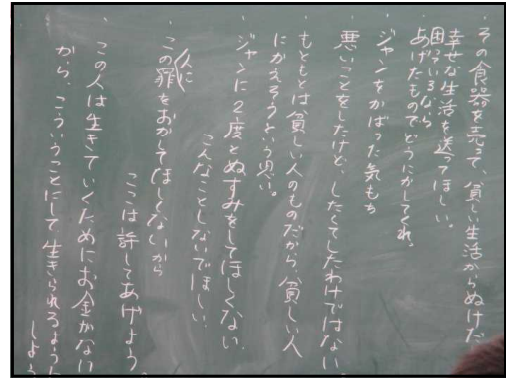 ・その食器を売って、貧しい生活からぬけだ
幸せな生活を送ってほしい。
・困っているなら
あげたものでどうにかしてくれ。
・ジャンをかばった気もち
・悪いことをしたけど、したくてしたわけではない。
・もともとは貧しい人のものだから、貧しい人
にかえそうという思い。
・ジャンに2度とぬすみをしてほしくない。
こんなことしないでほしい。
・この罪をおかしてほしくないから
人に
ここは許してあげよう。
・この人は生きていくためにお金がない
から、こういうことにして生きられるように
しよう